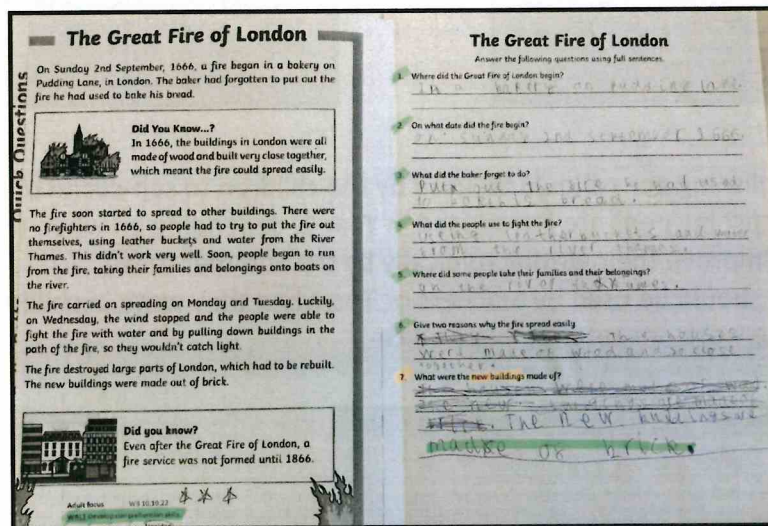 The Great Fire of London
Quick Questions
On Sunday 2nd September, 1666, a fire began in a bakery on
Pudding Lane, in London. The baker had forgotten to put out the
fire he had used to bake his bread.
Did You Know...?
In 1666, the buildings in London were all
made of wood and built very close together,
which meant the fire could spread easily.
The fire soon started to spread to other buildings. There were
no firefighters in 1666, so people had to try to put the fire out
themselves, using leather buckets and water from the River
Thames. This didn't work very well. Soon, people began to run
from the fire, taking their families and belongings onto boats on
the river.
The fire carried on spreading on Monday and Tuesday. Luckily,
on Wednesday, the wind stopped and the people were able to
fight the fire with water and by pulling down buildings in the
path of the fire, so they wouldn't catch light.
The fire destroyed large parts of London, which had to be rebuilt.
The new buildings were made out of brick.
Did you know?
Even after the Great Fire of London, a
fire service was not formed until 1866.
Adult focus
The Great Fire of London
Answer the following questions using full sentences.
1. Where did the Great Fire of London begin?
In a bakery on pudding
2. On what date did the fire begin?
sunday 2nd september 1666
3. What did the baker forget to do?
out the fire he had used
bread.
4. What did the people use to fight the fire?
using buckets and water
the river
5. Where did some people take their families and their belongings?
on the river
6. Give two reasons why the fire spread easily
houses
were made of wood and so close
together.
7. What were the new buildings made of?
The new buildings
of brick.